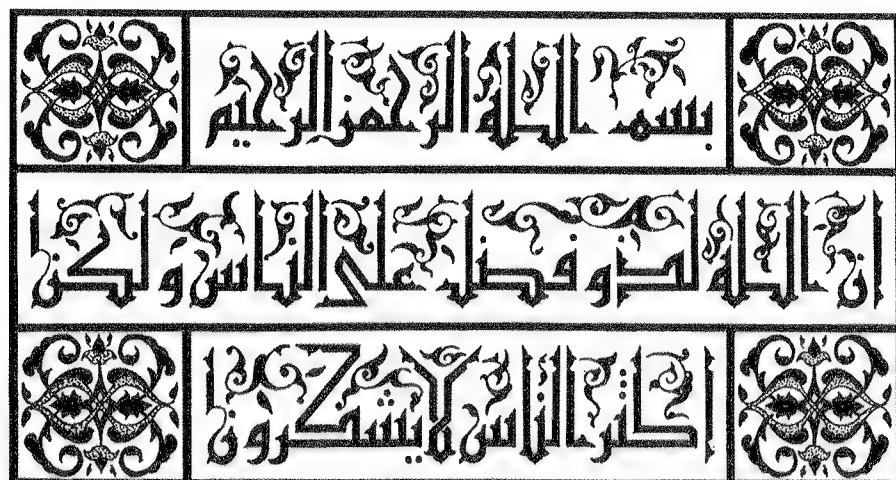 بسم الله الرحمن الرحيم
ان الله لذو فضل على الناس ولكن
اكثر الناس لا يشكرون